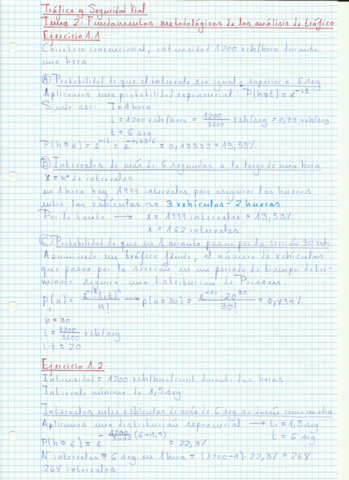 Tráfico y Seguridad Vial
Tema 2: Fundamentos metodológicos de los análisis de tráfico
Ejercicio 1.1
Carretera convencional, intensidad 1200 veh/hora durante
una hora
A) Probabilidad de que el intervalo sea igual y superior a 6 seg
Aplicamos una probabilidad exponencial P(h≥t) = e^-it
Siendo así: T=1 hora
i = 1200 veh/hora = 1200/3600 veh/seg = 0,33 veh/seg
t = 6 seg
P(h≥6) = e^-it = e^-0,33·6 = 0,13533 = 13,53%
B) Intervalos de más de 6 segundos a lo largo de una hora
x = nº de intervalos
en 1 hora hay 1999 intervalos para asegurar los huecos
entre los vehículos ~> 3 vehículos - 2 huecos
Por lo tanto → x = 1999 intervalos · 13,53%
x = 162 intervalos
C) Probabilidad de que en 1 minuto pasen por la sección 30 veh
Asumiendo un tráfico fluido, el número de vehículos
que pasan por la sección en un periodo de tiempo deter-
minado seguirá una distribución de Poisson
P(n) = e^-it (it)^n / n! → p(n=30) = e^-20 · 20^30 / 30! = 0,834%
n = 30
i = 1200/3600 veh/seg
i·t = 20
Ejercicio 1.2
Intensidad = 1200 veh/hora/carril durante dos horas
Intervalo mínimo de 1,5 seg
Intervalos entre vehículos de más de 6 seg se darán como media
Aplicamos una distribución exponencial → ti = 1,5 seg
t = 6 seg
P(h≥6) = e^-1200/3600 (6-1,5) = 22,3%
N intervalos = 6 seg en 1 hora = (1200-1) · 22,3% = 268
268 intervalos